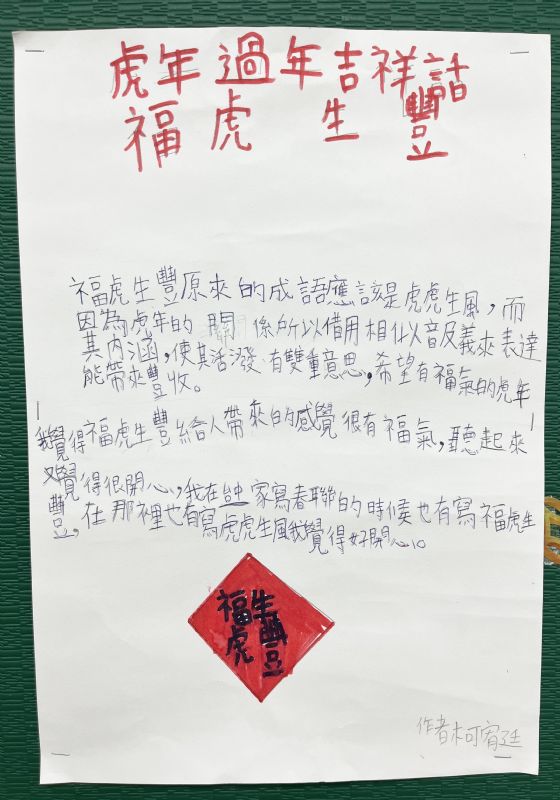 虎年過年吉祥話
福虎生豐
福虎生豐原來的成語應該是虎虎生風，而
因為虎年的關係所以借用相似音及義來表達
其內涵，使其活潑、有雙重意思，希望有福氣的虎年
能帶來豐收。
我覺得福虎生豐給人帶來的感覺很有福氣，聽起來
又覺得很開心，我在家寫春聯的時候也有寫福虎生
豐，在那裡也有寫虎虎生風我覺得好開心。
福生
虎豐
作者柯宥廷